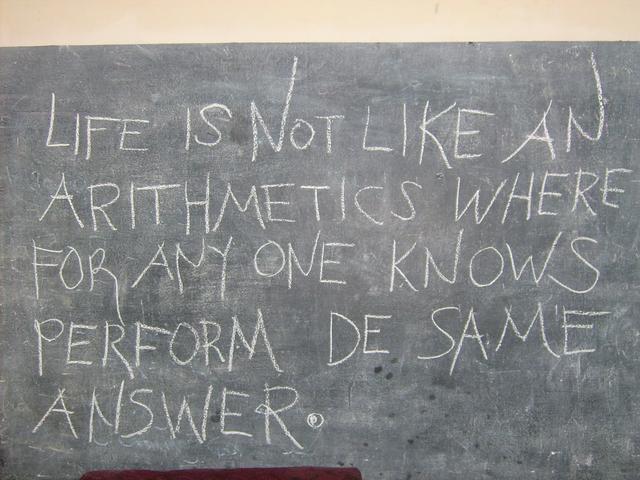 LIFE IS NOT LIKE AN
ARITHMETICS WHERE
FOR ANY ONE KNOWS
PERFORM DE SAME
ANSWER.